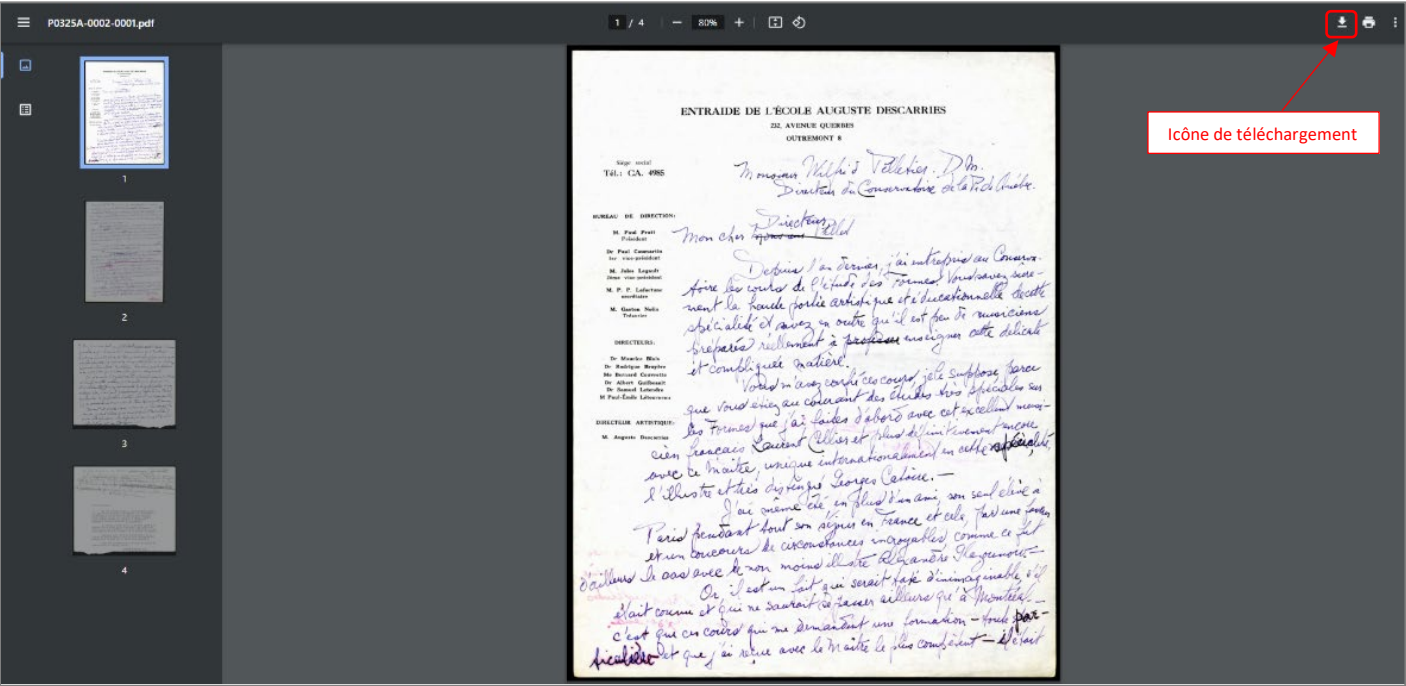 P0325A-0002-0001.pdf
1 / 4
80%
Icône de téléchargement
1
2
3
4
ENTRAIDE DE L'ÉCOLE AUGUSTE DESCARRIES
232, AVENUE QUERBES
OUTREMONT 8
Siège social
Tél.: CA. 4985
Monsieur Wilfrid Pelletier. D.M.
Directeur du Conservatoire de la P. de Québec.
BUREAU DE DIRECTION:
M. Paul Pratt
Président
Dr Paul
1er vice-président
M. Jules Legault
2ème vice-président
M. P. P. Lafortune
secrétaire
M. Gaston
Trésorier
DIRECTEURS:
Dr Maurice Blais
Dr Rodrigue Bruyère
Me Bernard Couvrette
Dr Albert Guilbeault
Dr Samuel Letendre
M Paul-Émile Létourneau
DIRECTEUR ARTISTIQUE:
M. Auguste Descarries
Directeur
Mon cher
Depuis l'an dernier, j'ai entrepris au Conserva-
toire les cours de l'étude des Formes. Vous savez sûre-
ment la haute portée artistique et éducationnelle de cette
spécialité et savez en outre qu'il est peu de musiciens
préparés réellement à professer enseigner cette délicate
et compliquée matière.
Vous m'avez confié ces cours, je le suppose, parce
que vous étiez au courant des études très spéciales sur
les Formes que j'ai faites d'abord avec cet excellent musi-
cien français Laurent Cellier et plus définitivement encore
avec ce Maître, unique internationalement en cette spécialité,
l'illustre et très distingué Georges Catoire. —
J'ai même été en plus d'un ami, son seul élève à
Paris pendant tout son séjour en France et cela, par une faveur
et un concours de circonstances incroyables, comme ce fut
d'ailleurs le cas avec le non moins illustre Alexandre Glazounow. —
Or, il est un fait qui serait taxé d'inimaginable, s'il
était connu et qui ne saurait se passer ailleurs qu'à Montréal. —
c'est que ces cours qui me demandent une formation — toute par-
ticulière et que j'ai reçue avec le Maître le plus compétent — était